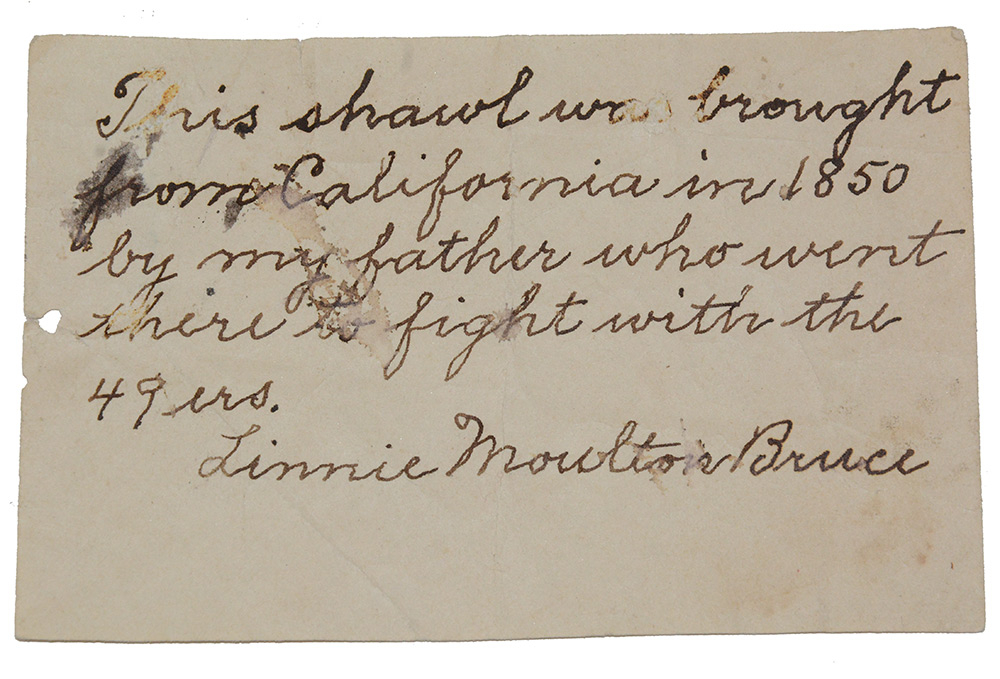 This shawl was brought
from California in 1850
by my father who went
there to fight with the
49ers.
Linnie Moulton Bruce